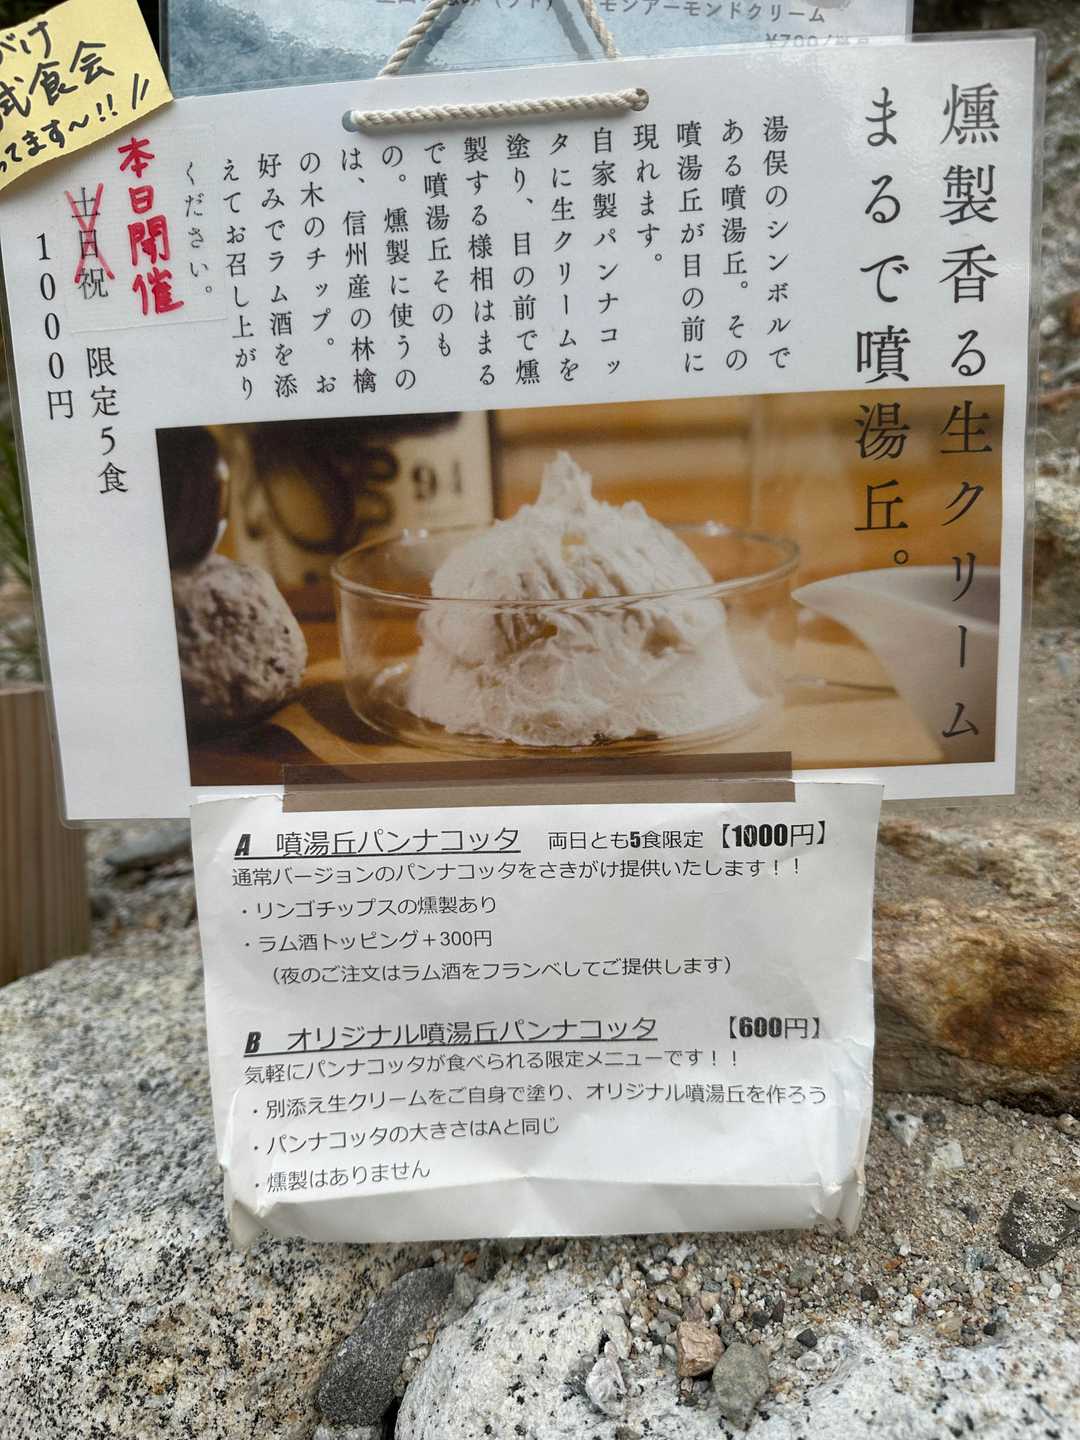 モンアーモンドクリーム
がけ
試食会
ってます〜!! //
燻製香る生クリーム
まるで噴湯丘。
湯俣のシンボルで
ある噴湯丘。その
噴湯丘が目の前に
現れます。
自家製パンナコッ
タに生クリームを
塗り、目の前で燻
製する様相はまる
で噴湯丘そのも
の。燻製に使うの
は、信州産の林檎
の木のチップ。お
好みでラム酒を添
えてお召し上がり
ください。
本日開催
土日祝 限定5食
1000円
A 噴湯丘パンナコッタ 両日とも5食限定【1000円】
通常バージョンのパンナコッタをさきがけ提供いたします!!
・リンゴチップスの燻製あり
・ラム酒トッピング+300円
(夜のご注文はラム酒をフランベしてご提供します)
B オリジナル噴湯丘パンナコッタ 【600円】
気軽にパンナコッタが食べられる限定メニューです!!
・別添え生クリームをご自身で塗り、オリジナル噴湯丘を作ろう
・パンナコッタの大きさはAと同じ
・燻製はありません